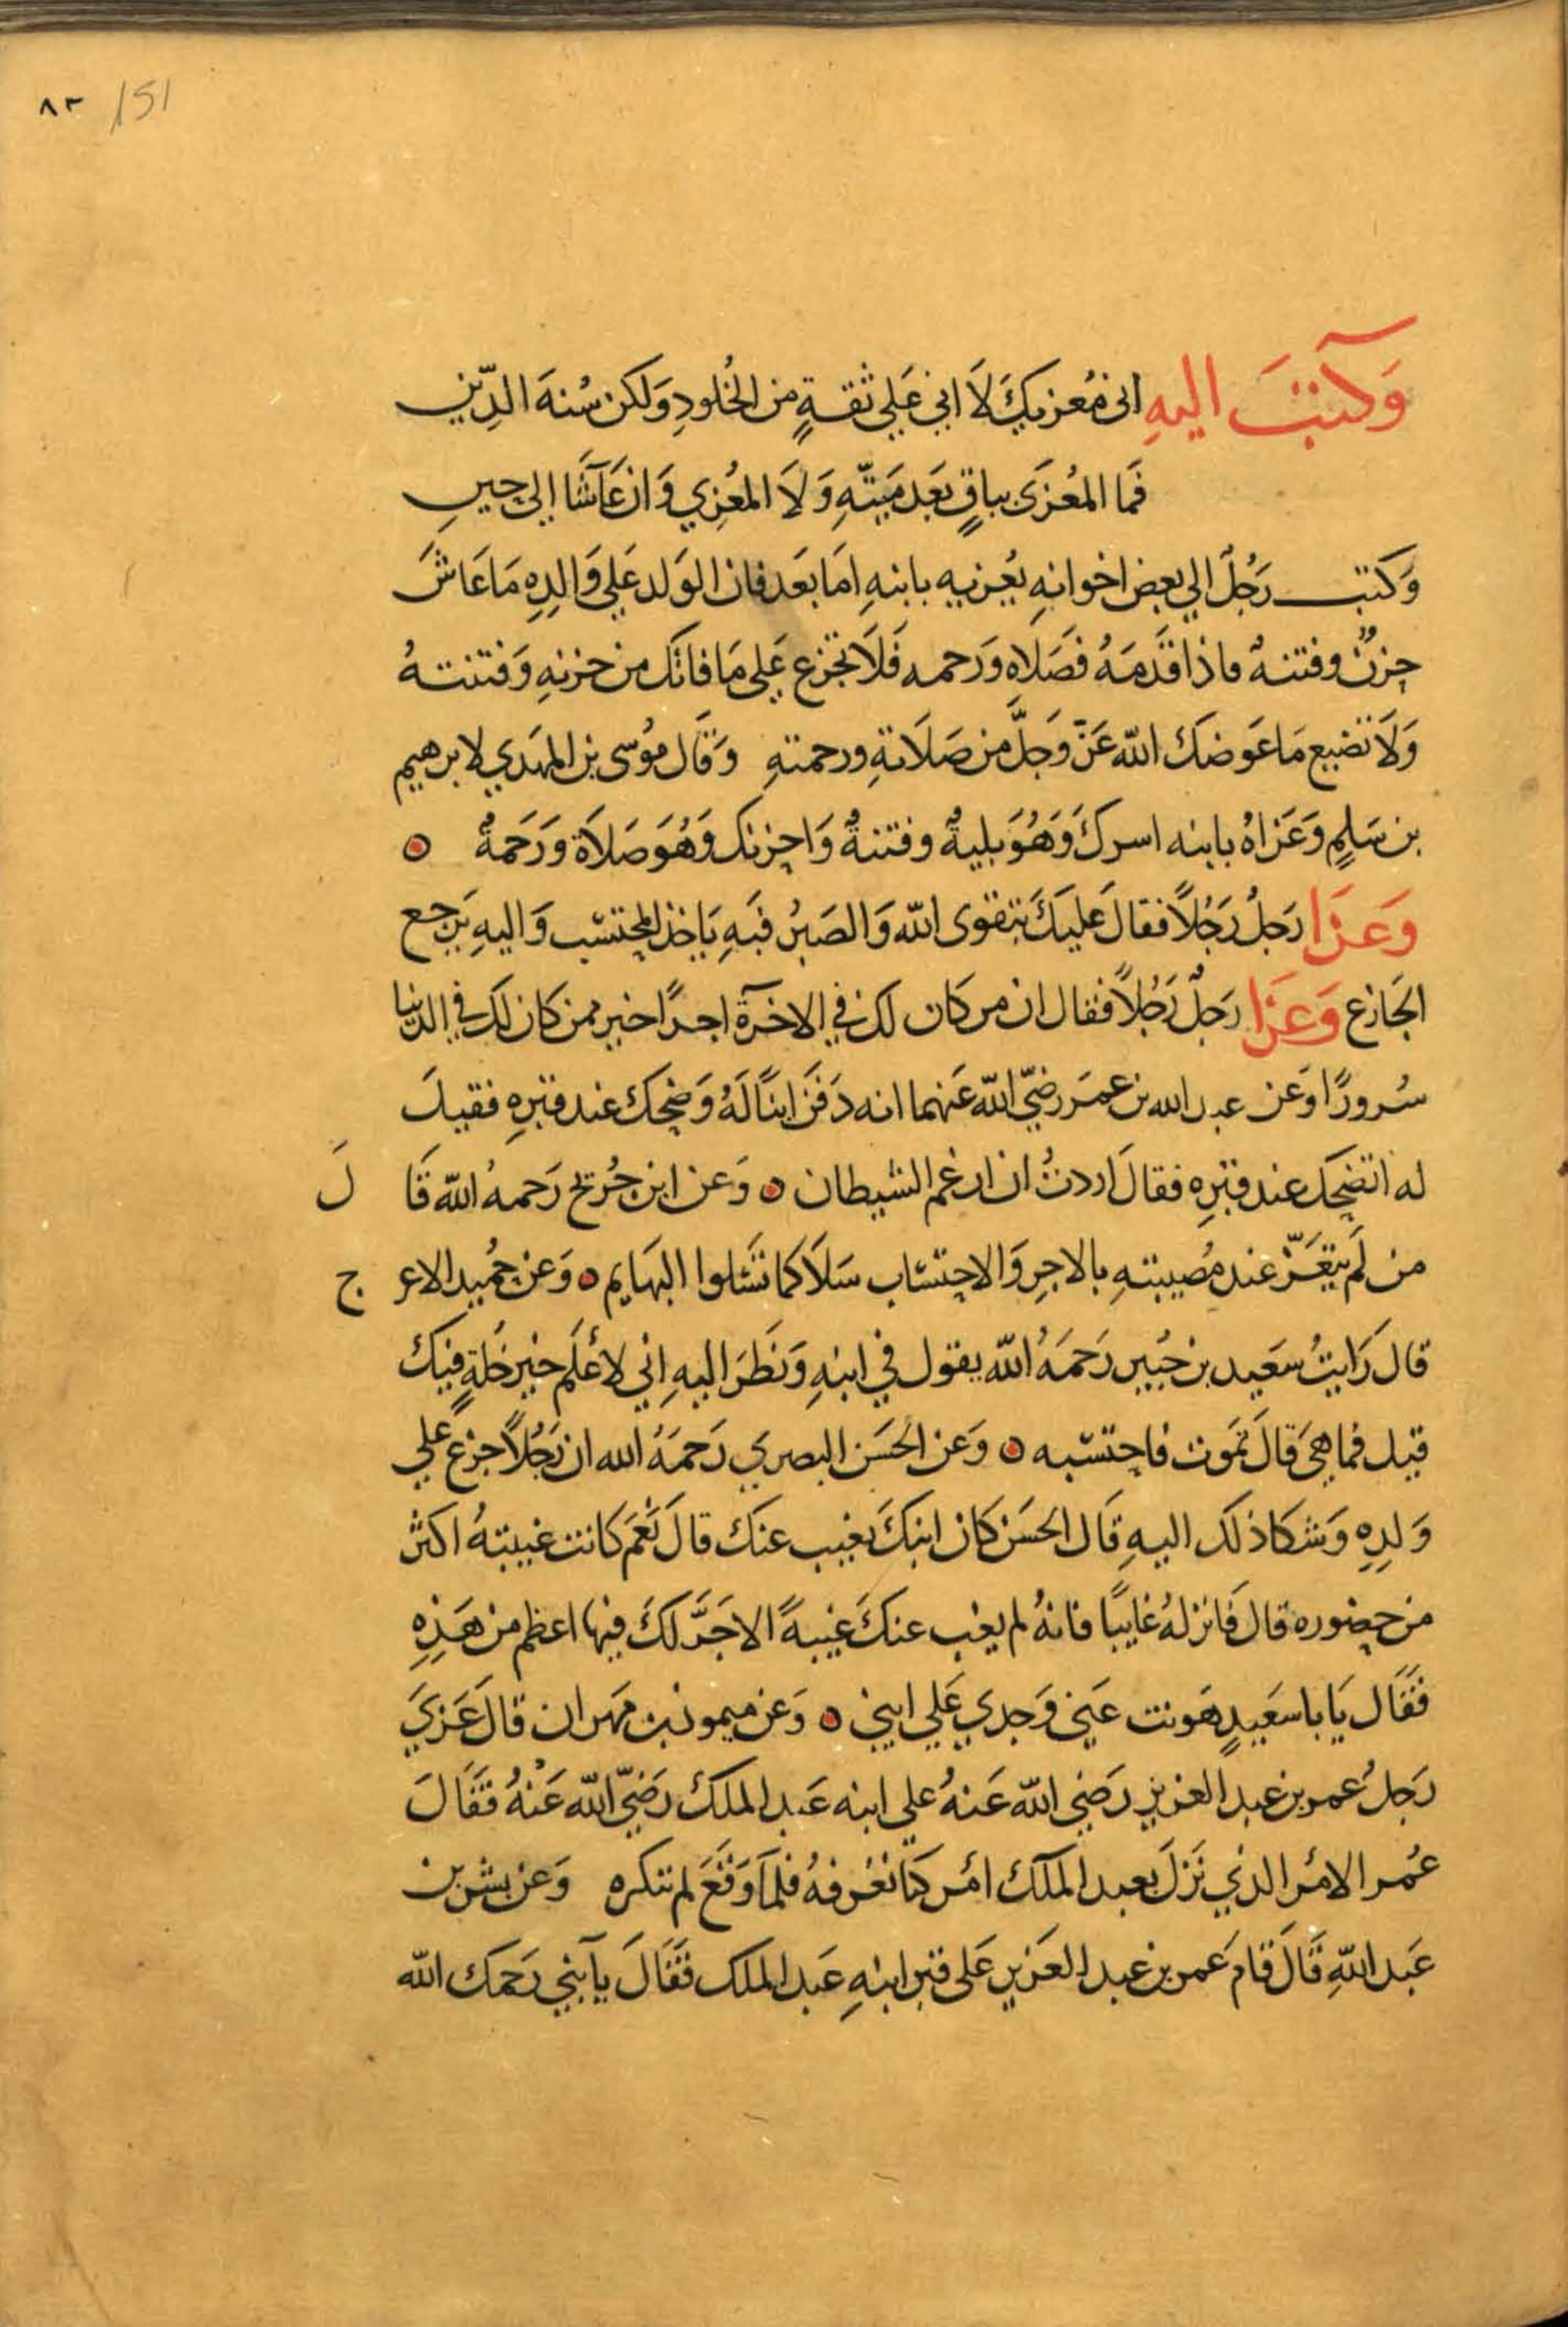 ٨٣ /151
وَكتبَ اليهِ اني مُعزيكَ لَا اني عَلي ثقةٍ من الخُلودِ وَلكن سُنةَ الدِّين
فَما المعُزىَ بباقٍ بَعَد مَيّتهِ وَلَا المعُزِي وَان عَاشَا إلي حينِ
وَكتب رَجُلٌ الي بعض اخوانهِ يعُزيه بابنهِ امَا بَعَد فان الوَلد عَلي وَالدِهِ مَا عَاشَ
حزنٌ وفتنهٌ فاذا قدَمَهُ فصَلاه وَرحمه فَلَا تجزع عَلي مَا فاتَك من حزنهِ وَفتنتهُ
وَلَا تضيع مَا عَوضَكَ اللّه عَزّ وَجَلَّ من صَلَاتهِ ورحمتهِ وَقَال موُسى بن المهَدي لابرهيم
بن سَلمٍ وَعَزاهُ بابنه اسركَ وَهُوَ بليةٌ وفتنةٌ وَاحزنك وَهُوَ صَلَاة وَرَحَمةٌ
وَعَزَا رَجلٌ رَجُلًا فقالَ عَليكَ بتقوى اللّه وَالصَبرُ فبَهِ يَاخذ المحتسب وَاليهِ يَرجع
الجَازع وَعَزَا رَجلٌ رَجُلًا فقال ان من كَان لك في الاخرَة اجرًا خير ممن كان لكَ في الدنيا
سُرورًا وَعَن عبد الله بن عمَر رضيّ اللّه عَنهما انه دَفَن ابنًا لَهُ وَضحكَ عند قبرِهِ فقيلَ
له اتضحك عند قبرِه فقالَ اردتُ ان ارغم الشيطان وَعن ابن جُريج رَحمهُ اللّه قَا لَ
من لَم يتَعَزّ عند مُصيبتهِ بالاجرِ وَالاحتسَاب سَلَا كما تَسَلوا البهَايم وَعَن حُميد الاعر ج
قال رَايتُ سَعيد بن جُبير رَحمَهُ اللّه يقول في ابنهِ وَنظَرَ اليهِ اِني لاَعْلَم خير خَلةٍ فيكَ
قيل فما هيَ قالَ تَموَت فاحتسَبه وَعن الحسَن البصري رَحَمهُ الله ان رَجُلًا جزعَ علي
وَلدِهِ وَشكا ذلكَ اليهِ قَال الحسَن كَان ابنكَ يغيب عنكَ قالَ نَعَم كانت غيبتهُ اكثر
من حضوره قال فَانزلهُ غايبًا فانهُ لم يغب عنكَ غيبهً الاجَرّ لكَ فيها اعظم من هَذِهِ
فقَال يَا باسَعيدٍ هَونت عَني وَجدي عَلي ابني وَعَن ميمون بن مهرَان قال عَزيَ
رَجلٌ عمر بن عبد العزيز رَضي اللّه عَنهُ علي ابنه عَبد الملكَ رَضيّ اللّه عَنْهُ فَقَالَ
عُمر الامْر الذي نزَلَ بعبد الملَك اَمْر كنا نعْرفهُ فلمَا وَقَعَ لم ننكره وَعن بشر بن
عَبد اللّهِ قَالَ قَامَ عَمر بن عبد العَزيز عَلى قبر ابنهِ عَبد الملك فَقَالَ يا بني رَحمَك اللّه